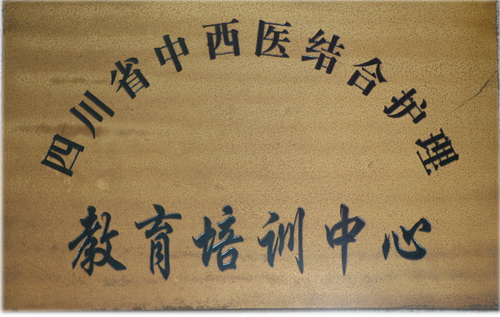 四川省中西医结合护理
教育培训中心